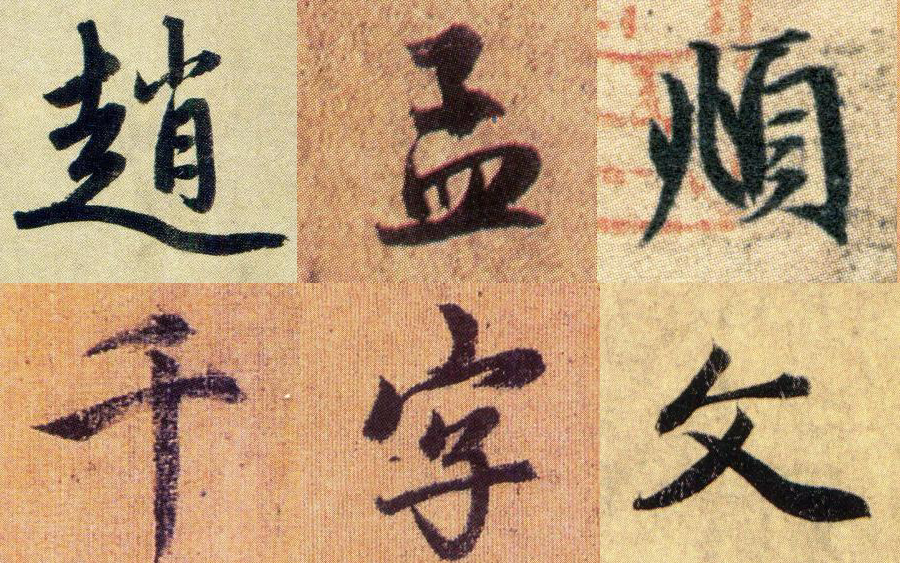 趙孟頫
千字文